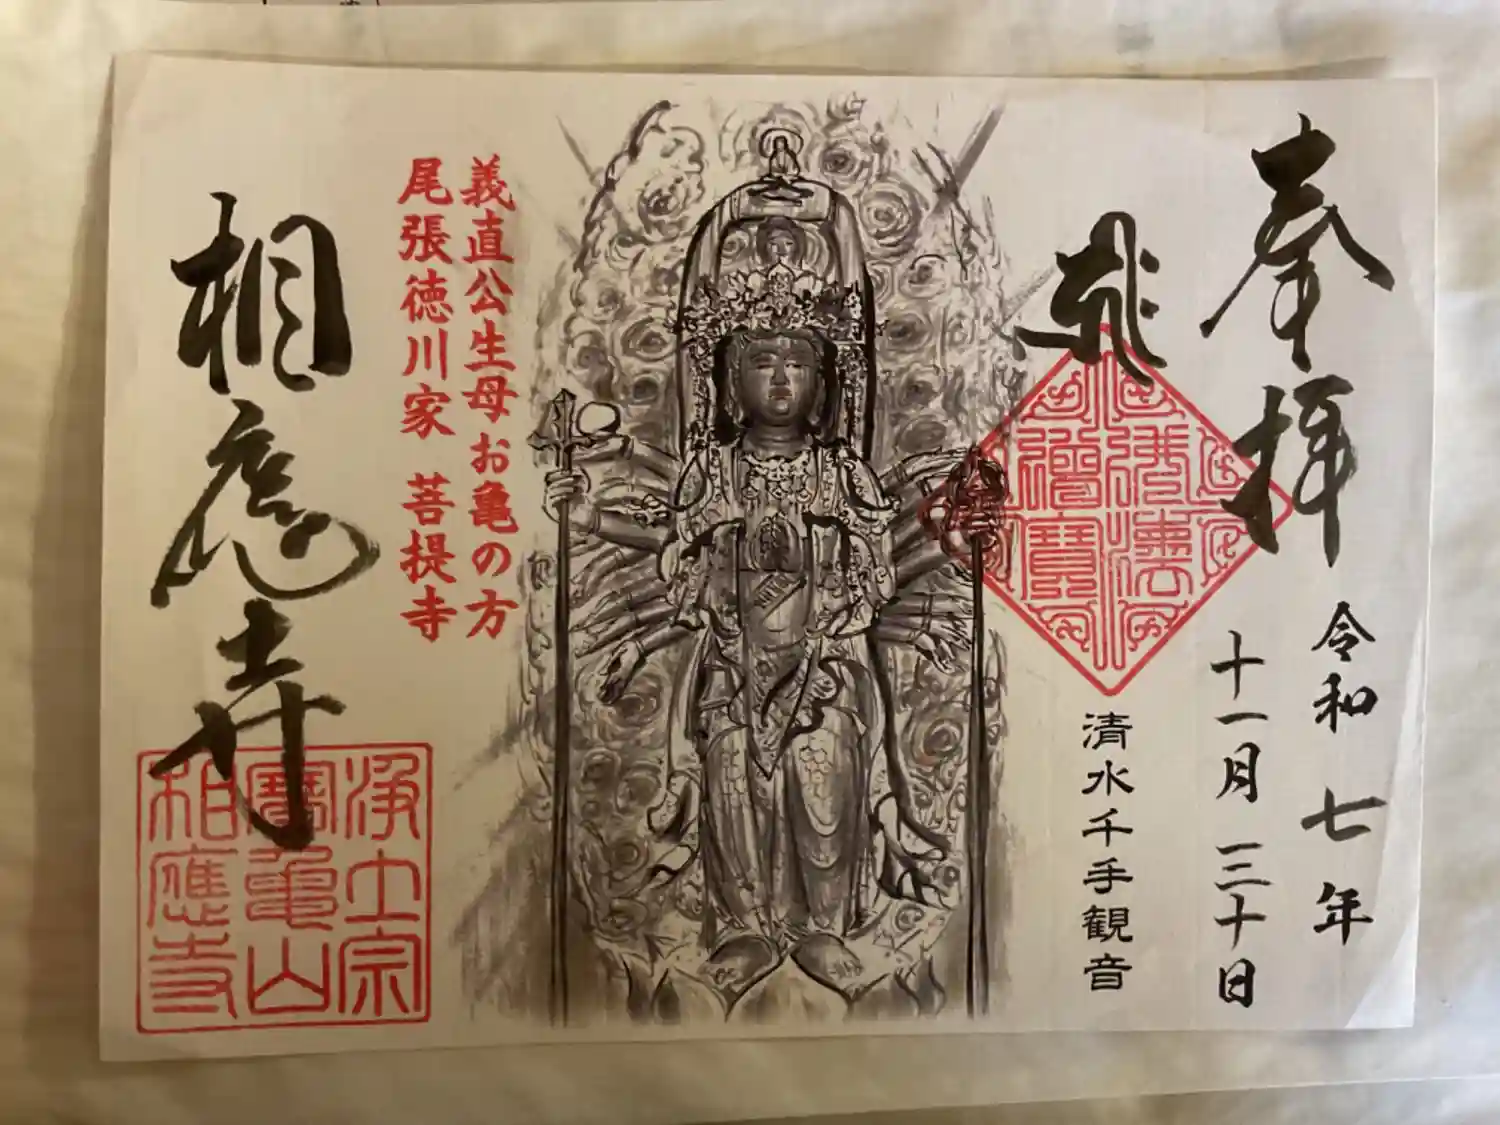 奉拝
令和七年
十一月三十日
佛法僧寶
清水千手観音
義直公生母お亀の方
尾張徳川家 菩提寺
相應寺
浄土宗
寶亀山
相應寺